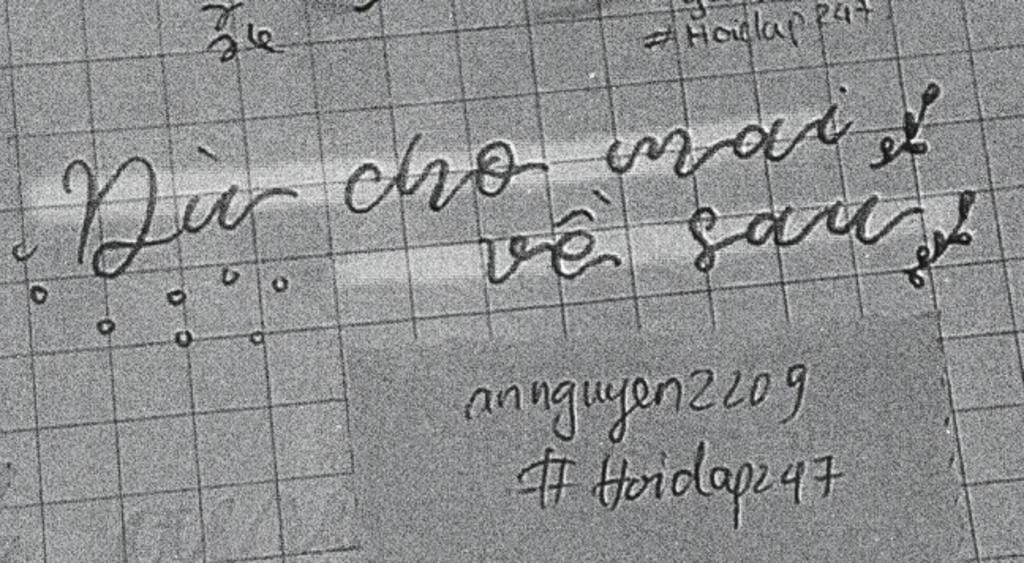 #Hoidap247
Dù cho mai
về sau
annguyen2209
#Hoidap247